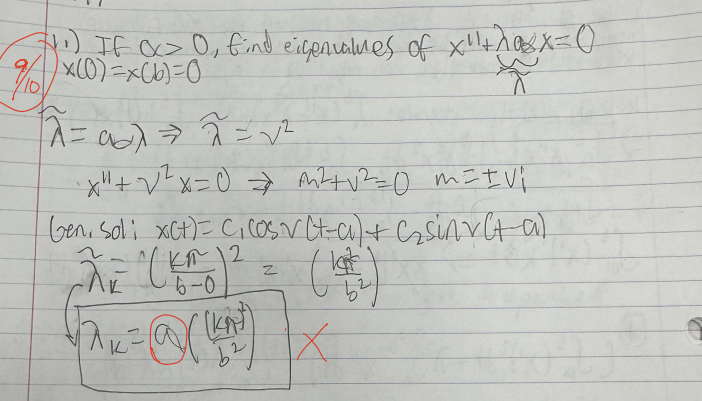 ii) If α > 0, find eigenvalues of x'' + λαx = 0
λ̃
9/10
x(0) = x(b) = 0
λ̃ = αλ ⇒ λ̃ = v²
x'' + v²x = 0 ⇒ m² + v² = 0 m = ±vi
Gen. sol: x(t) = C₁cos v(t-a) + C₂sin v(t-a)
λ̃ₖ = (kπ/b-0)² = (kπ²/b²)
λₖ = α((kπ)²/b²) X